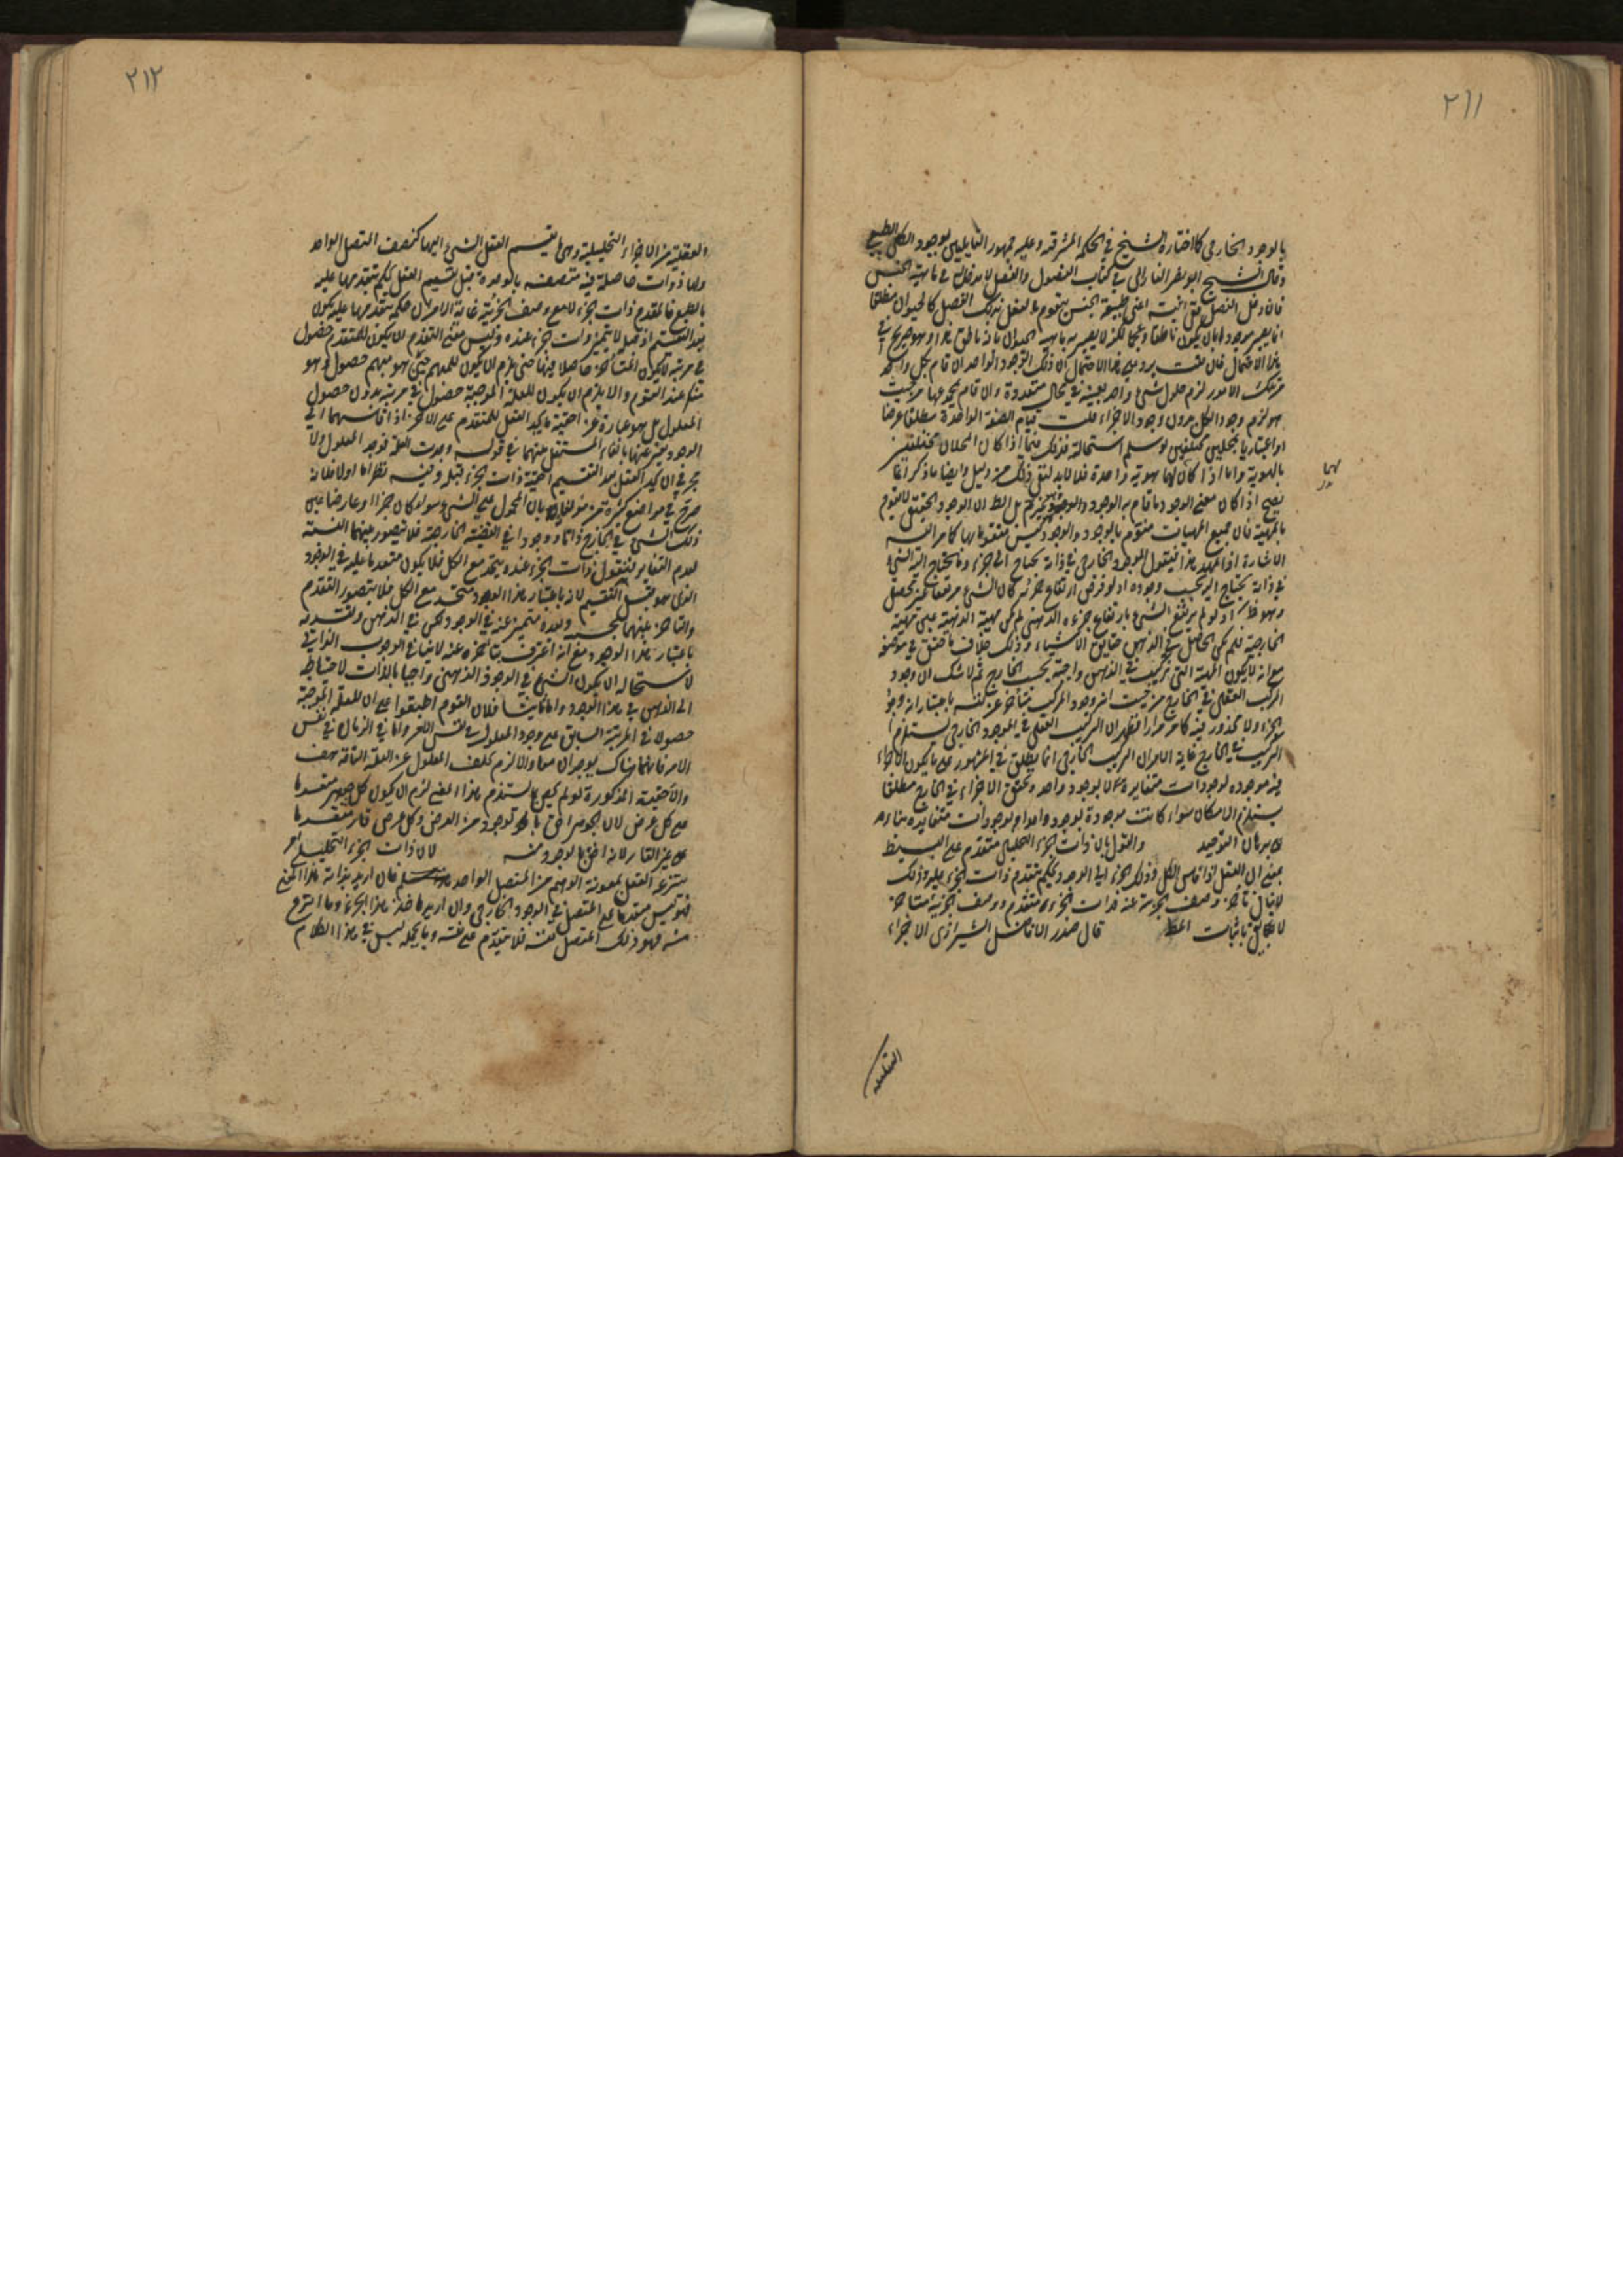 ٢١١
بالوجود الخارجي كما اختاره الشيخ في الحكمة المشرقية وعليه جمهور القايلين بوجود الكلي الطبيعي
وقال الشيخ ابو نصر الفارابي في كتاب الفصول والفصل لا مدخل له في ماهية الجنس
فان دخل الفصل ففي انيته اعني طبيعة الجنس يتقوم بالفعل بذلك الفصل كالحيوان مطلقا
انما يصير موجودا بان يكون ناطقا او اعجم لكنه لا يصير له ماهية الحيوان بانه ناطق هذا وهو صريح في
هذا الاحتمال فان قلت يرد على هذا الاحتمال ان ذلك الوجود الواحد ان قام بكل واحد
من تلك الامور لزم حلول شيء واحد بعينه في محال متعددة وان قام بمجموعها من حيث
هو لزم وجود الكل بدون وجود الاجزاء قلت قيام الصفة الواحدة مطلقا عرضا
او اعتباريا بمحلين مختلفين لو سلم استحالته فذلك فيما اذا كان المحلان مختلفين
بالهوية واما اذا كان لهما هوية واحدة فلا لابد لنفي ذلك من دليل وايضا ما ذكر انما
يصح اذا كان معنى الوجود ما قام به الوجود
بالمهية فان جميع المهيات متقوم بالوجود والوجود ليس متقوما بها كما مر اليه
الاشارة اذا تمهد هذا فنقول الموجود الخارجي في ذاته يحتاج الى جزء وما يحتاج اليه الشيء
في ذاته يحتاج اليه بحسب وجوده اذ لو فرض ارتفاع جزئه كان الشيء مرتفعا
وهو ظ اذ لو لم يرتفع الشيء بارتفاع جزءه الذهني لم يكن مهيته الذهنية عين مهيته
الخارجية فلم يكن الحاصل في الذهن حقايق الاشياء وذلك خلاف ما حقق في موضعه
مع انه لا يكون المهية التي تركبت في الذهن واجبة بحسب الخارج ثم لا شك ان وجود
المركب العقلي في الخارج من حيث انه وجود المركب متأخر عن نفسه باعتبار انه وجود
الجزء ولا محذور فيه كما مر مرارا فظهر ان التركيب العقلي في الموجود الخارجي يستلزم
التركيب في الخارج غاية الامر ان التركيب الخارجي انما يطلق في المشهور على ما يكون الاجزاء
فيه موجوده بوجودات متغايرة لا بوجود واحد وتحقق الاجزاء في الخارج مطلقا
يستلزم الامكان سواء كانت موجودة بوجود واحد او بوجودات متغايره
برهان التوحيد والقول بان ذات الجزء التحليلي متقدم على البسيط
بمعنى ان العقل اذا قاس الكل وذلك الجزء الى الوجود يحكم بتقدم ذات الجزء عليه وذلك
لا ينافي تأخر وصف الجزئية عنه فذات الجزء متقدم ووصف الجزئية متأخر
باثبات المط قال صدر الافاضل الشيرازي الاجزاء
العقلية
٢١٢
العقلية من الاجزاء التحليلية وهي ما يقسم العقل الشيء اليها كنصف المتصل الواحد
ولها ذوات حاصلة فيه متصفة بالوحدة قبل تقسيم العقل يحكم بتقدمها عليه
بالطبع فالمقدم ذات الجزء لا مع وصف الجزئية غاية الامر ان حكمه بتقدمها عليه يكون
بعد التقسيم اذ قبل لا يتميز ذات جزء عنده وليس معنى التقدم ان يكون للمتقدم حصول
في مرتبة لا يكون المتأخر حاصلا فيها حتى يلزم ان يكون للمبهم حين هو مبهم حصول وهو
منكر عند القوم والا يلزم ان يكون للعلة الموجبة حصول في مرتبة بدون حصول
المعلول بل هو عبارة عن احقية يجد العقل للمتقدم على الاخر اذا قاسهما الى
الوجود يعبر عنها بالفاء المستعمل بينهما في قولهم وجدت العلة فوجد المعلول ولا
حجر في ان يجد العقل بعد التقسيم احقية ذات الجزء قبل وفيه نظر اما اولا فلانه
صرح في مواضع كثيرة من مؤلفاته بان المحمول على الشيء سواء كان جزءا او عارضا عين
ذلك الشيء في الخارج ذاتا ووجودا في القضية الخارجة فلا يتصور بينهما النسبة
لعدم التغاير فنقول ذات الجزء عنده يتحد مع الكل فلا يكون متقدما عليه في الوجود
الذي هو قبل التقسيم لانه باعتبار هذا الوجود متحد مع الكل فلا يتصور التقدم
والتأخر بينهما بحسبه وبعده متميز عنه في الوجود لكن في الذهن وتقدمه
باعتبار هذا الوجود مع انه اعترف بتأخره عنه لا ينافي الوجوب الذاتي
لاستحالة ان يكون الشيء في الوجود الذهني واجبا بالذات لاحتياجه
الى الذهن في هذا الوجود واما ثانيا فلان القوم اطبقوا على ان للعلة الموجبة
حصولا في المرتبة السابق على وجود المعلول في نفس الامر واما في الزمان في نفس
الامر فانهما هناك يوجدان معا والا لزم تخلف المعلول عن العلة التامة هف
والاحقية المذكورة لو لم يكن مستلزم هذا المعنى لزم ان يكون كل جوهر متقدما
على كل عرض لان الجوهر احق بالوجود من العرض وكل عرض قار متقدما
على غير القار لانه احق بالوجود منه لان ذات الجزء التحليلي
ينتزعه العقل بمعونة الوهم من المتصل الواحد فان اريد بذاته هذا المعنى
فهو ليس متقدما على المتصل في الوجود الخارجي وان اريد ما خذ هذا الجزء وما انتزع
منه فهو ذلك المتصل نفسه فلا يتقدم على نفسه وبالجملة ليس في هذا الكلام